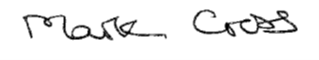 Mark Cross